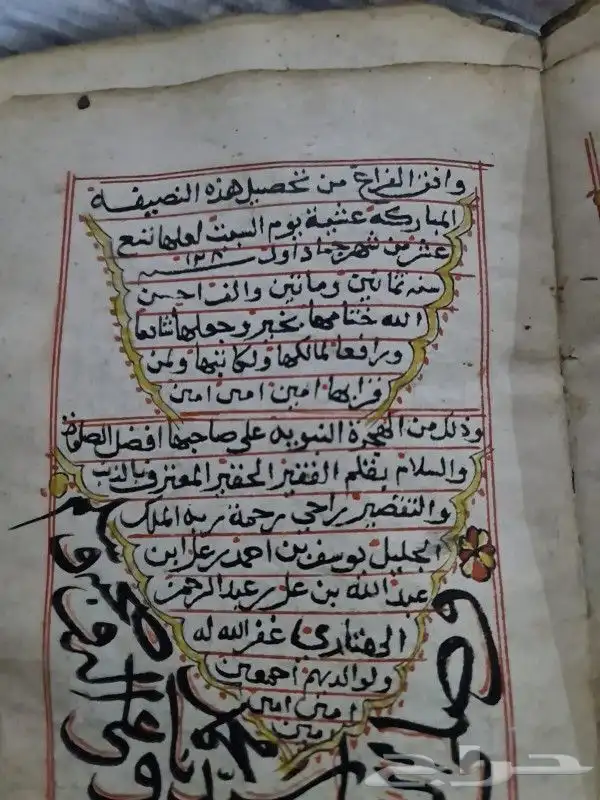 وافق الفراغ من تحصيل هذه النصيفه
المباركة عشية يوم السبت لعلها تسع
عشر من شهر جماد اول ١٢٨٠
سنه ثمانين ومائتين والف احسن
الله ختامها بخير وجعلها نافعا
ورافعا لمالكها ولكاتبها ولمن
قرابها امين امين امين
وذلك من الهجرة النبويه على صاحبها افضل الصلوة
والسلام بقلم الفقير الحقير المعترف بالذنب
والتقصير راجي رحمة ربه الملك
الجليل يوسف بن احمد بن علي ابن
عبد الله بن علي بن عبد الرحمن
غفر الله له
ولوالديهم اجمعين
امين امين
امين
وعلى اله
محمد
حراج